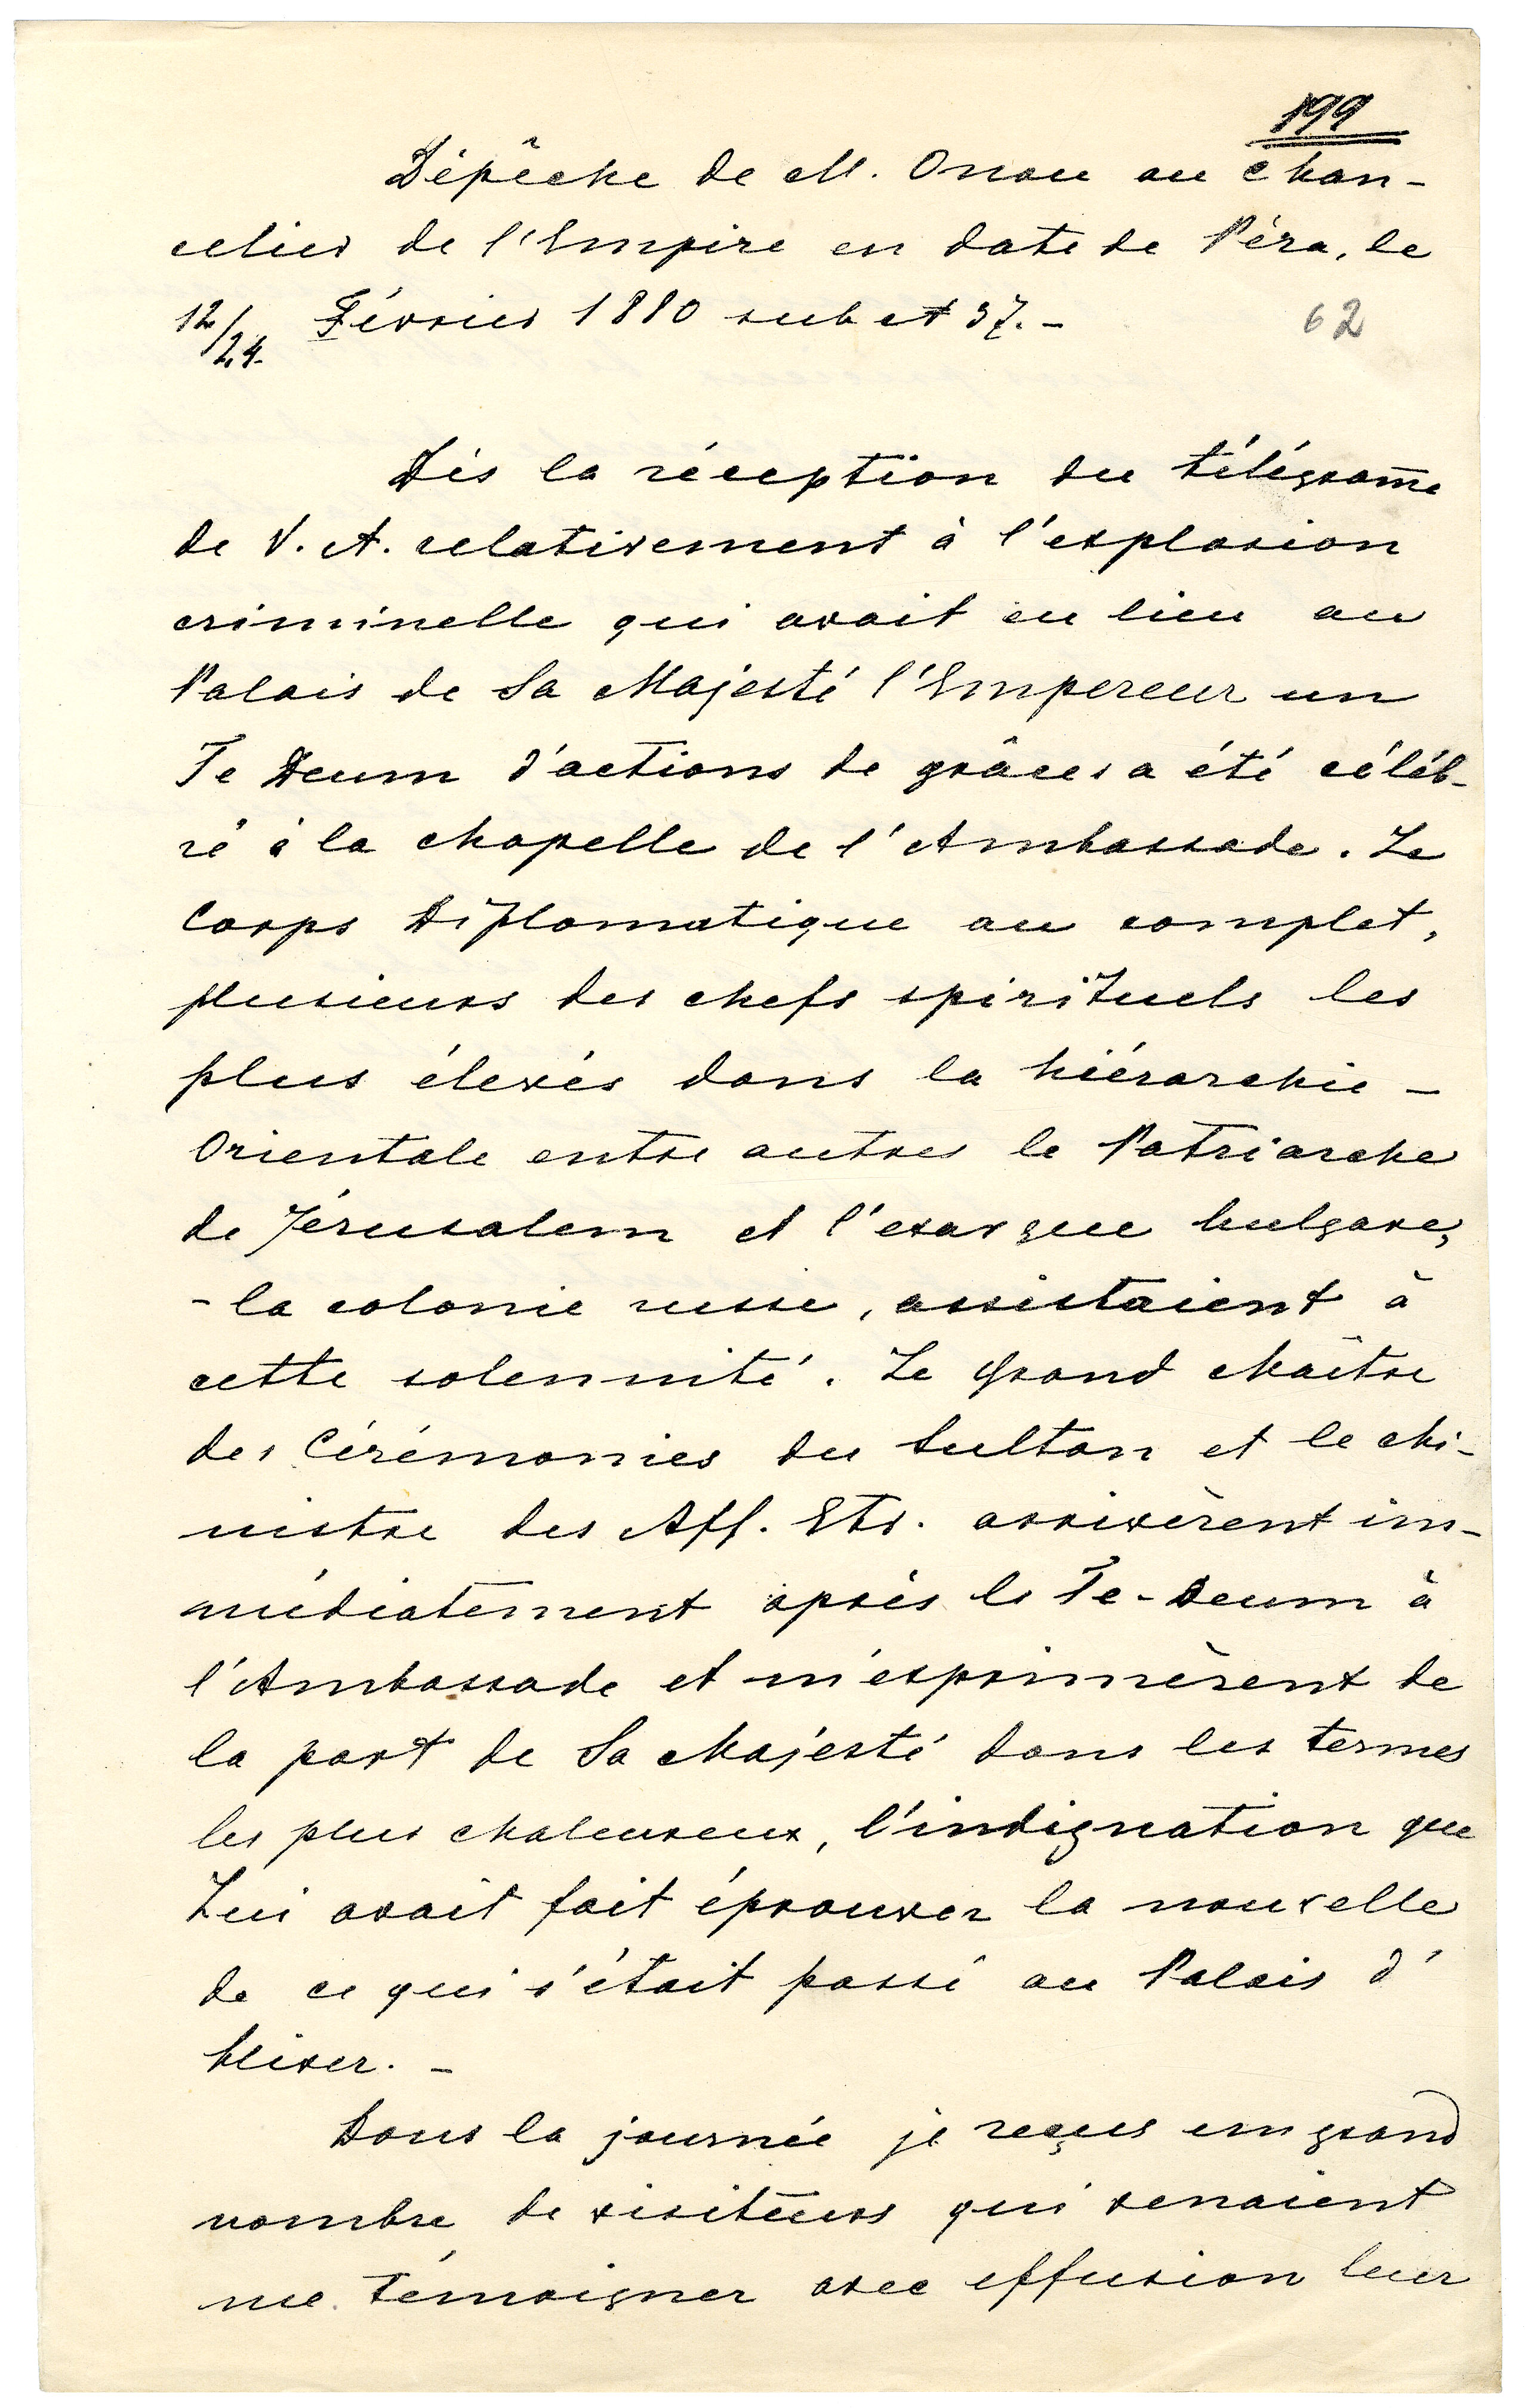 199
Dépêche de M. Onou au Chan-
celier de l'Empire en date de Péra, le
12/24 Février 1880 sub № 37. -
62
Dès la réception du télégram̄e
de V. A. relativement à l'explosion
criminelle qui avait eu lieu au
Palais de Sa Majesté l'Empereur un
Te Deum d'actions de grâces a été céléb-
ré à la chapelle de l'Ambassade. Le
Corps Diplomatique au complet,
plusieurs des chefs spirituels les
plus élevés dans la hiérarchie -
Orientale entre autres le Patriarche
de Jérusalem et l'exarque bulgare,
- la colonie russe, assistaient à
cette solennité. Le Grand Maître
des Cérémonies du Sultan et le Mi-
nistre des Aff. Etr. arrivèrent im-
médiatement après le Te-Deum à
l'Ambassade et m'exprimèrent de
la part de Sa Majesté dans les termes
les plus chaleureux, l'indignation que
Lui avait fait éprouver la nouvelle
de ce qui s'était passé au Palais d'
hiver. -
Dans la journée je reçus un grand
nombre de visiteurs qui venaient
me témoigner avec effusion leur